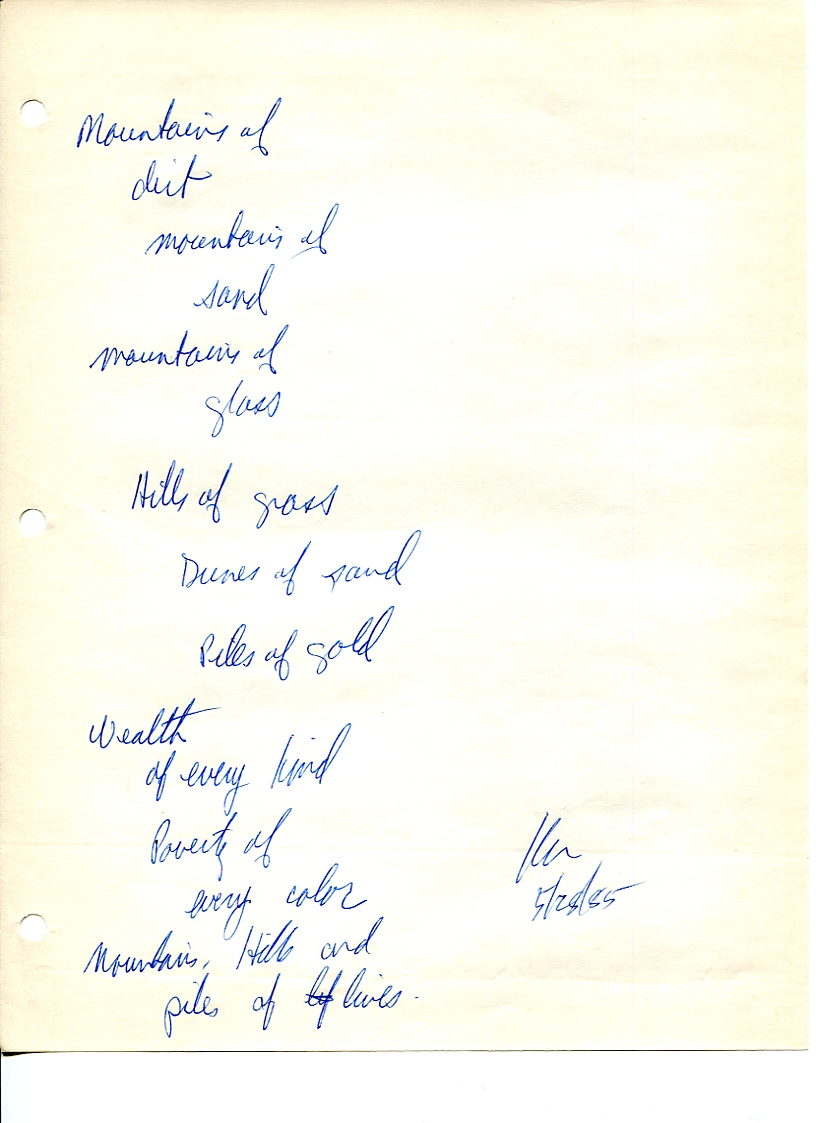 Mountains of
dirt
mountains of
sand
mountains of
glass
Hills of grass
Dunes of sand
Piles of gold
Wealth
of every kind
Poverty of
every color
Mountains, Hills and
piles of lives.
5/28/85